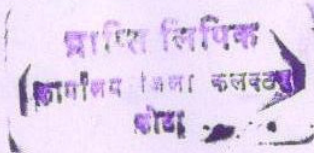 प्राप्ति लिपिक
कार्यालय जिला कलक्टर
कोटा